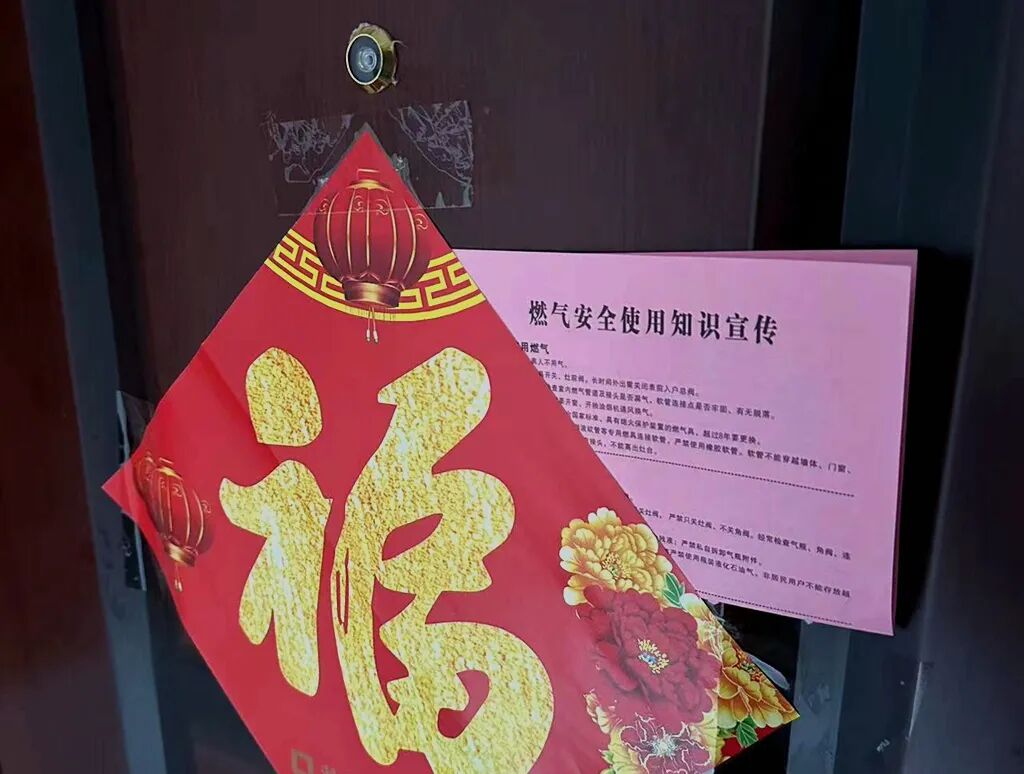 福
燃气安全使用知识宣传
用燃气
人不用气。
开关、灶前阀。长时间外出需关闭表前入户总阀。
查室内燃气管道及接头是否漏气，软管连接点是否牢固、有无脱落。
要开窗，开抽油烟机通风换气。
国家标准、具有熄火保护装置的燃气具，超过8年要更换。
纹软管等专用燃具连接软管，严禁使用橡胶软管。软管不能穿越墙体、门窗、
接头，不能高出灶台。
关灶阀，严禁只关灶阀、不关角阀。经常检查气瓶、角阀、连
残液；严禁私自拆卸气瓶附件。
严禁使用瓶装液化石油气。非居民用户不能存放超